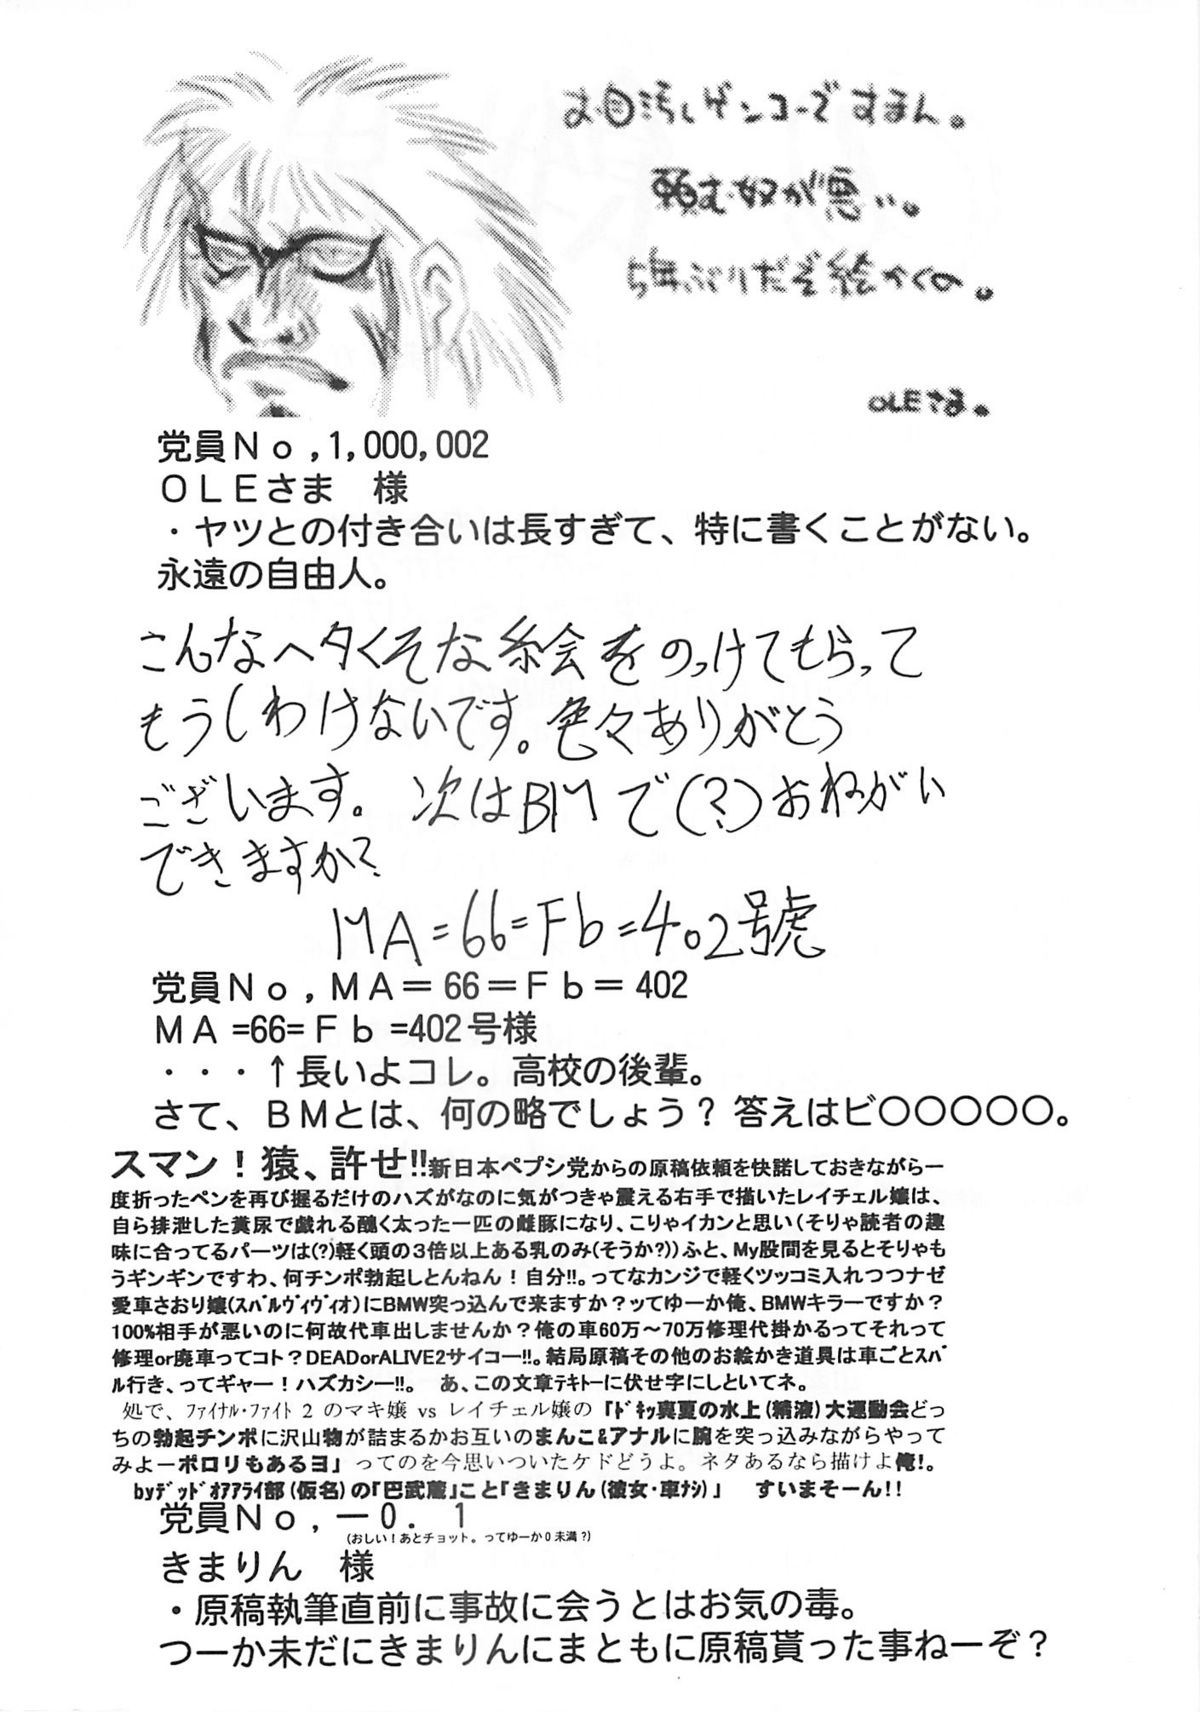 お目汚しゲンコーですまん。
頼む奴が悪い。
5年ぶりだぞ絵かくの。
OLEさま。
党員No,1,000,002
OLEさま　様
・ヤツとの付き合いは長すぎて、特に書くことがない。
永遠の自由人。
こんなヘタくそな絵をのっけてもらって
もうしわけないです。色々ありがとう
ございます。 次はBMで(?)おねがい
できますか?
MA=66=Fb=402号
党員No,MA=66=Fb=402
MA=66=Fb=402号様
・・・↑長いよコレ。高校の後輩。
さて、BMとは、何の略でしょう?答えはビ〇〇〇〇〇。
スマン!猿、許せ!!新日本ペプシ党からの原稿依頼を快諾しておきながら一
度折ったペンを再び握るだけのハズがなのに気がつきゃ震える右手で描いたレイチェル嬢は、
自ら排泄した糞尿で戯れる醜く太った一匹の雌豚になり、こりゃイカンと思い(そりゃ読者の趣
味に合ってるパーツは(?)軽く頭の3倍以上ある乳のみ(そうか?))ふと、My股間を見るとそりゃも
うギンギンですわ、何チンポ勃起しとんねん!自分!!。ってなカンジで軽くツッコミ入れつつナゼ
愛車さおり嬢(スバルヴィヴィオ)にBMW突っ込んで来ますか?ッてゆーか俺、BMWキラーですか?
100%相手が悪いのに何故代車出しませんか?俺の車60万〜70万修理代掛かるってそれって
修理or廃車ってコト?DEADorALIVE2サイコー!!。結局原稿その他のお絵かき道具は車ごとスバ
ル行き、ってギャー!ハズカシー!!。　あ、この文章テキトーに伏せ字にしといてネ。
処で、ファイナル・ファイト2のマキ嬢 vs レイチェル嬢の「ドキッ真夏の水上(精液)大運動会どっ
ちの勃起チンポに沢山物が詰まるかお互いのまんこ&アナルに腕を突っ込みながらやって
みよーポロリもあるヨ」ってのを今思いついたケドどうよ。ネタあるなら描けよ俺!。
byデッドオアアライ部(仮名)の「巴武蔵」こと「きまりん(彼女・車ナシ)」　すいまそーん!!
党員No,ー0.1
(おしい!あとチョット。ってゆーか0未満?)
きまりん　様
・原稿執筆直前に事故に会うとはお気の毒。
つーか未だにきまりんにまともに原稿貰った事ねーぞ?